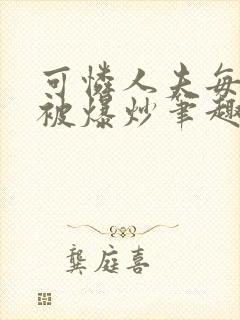 可怜人夫每
被爆炒笔趣
龚庭喜